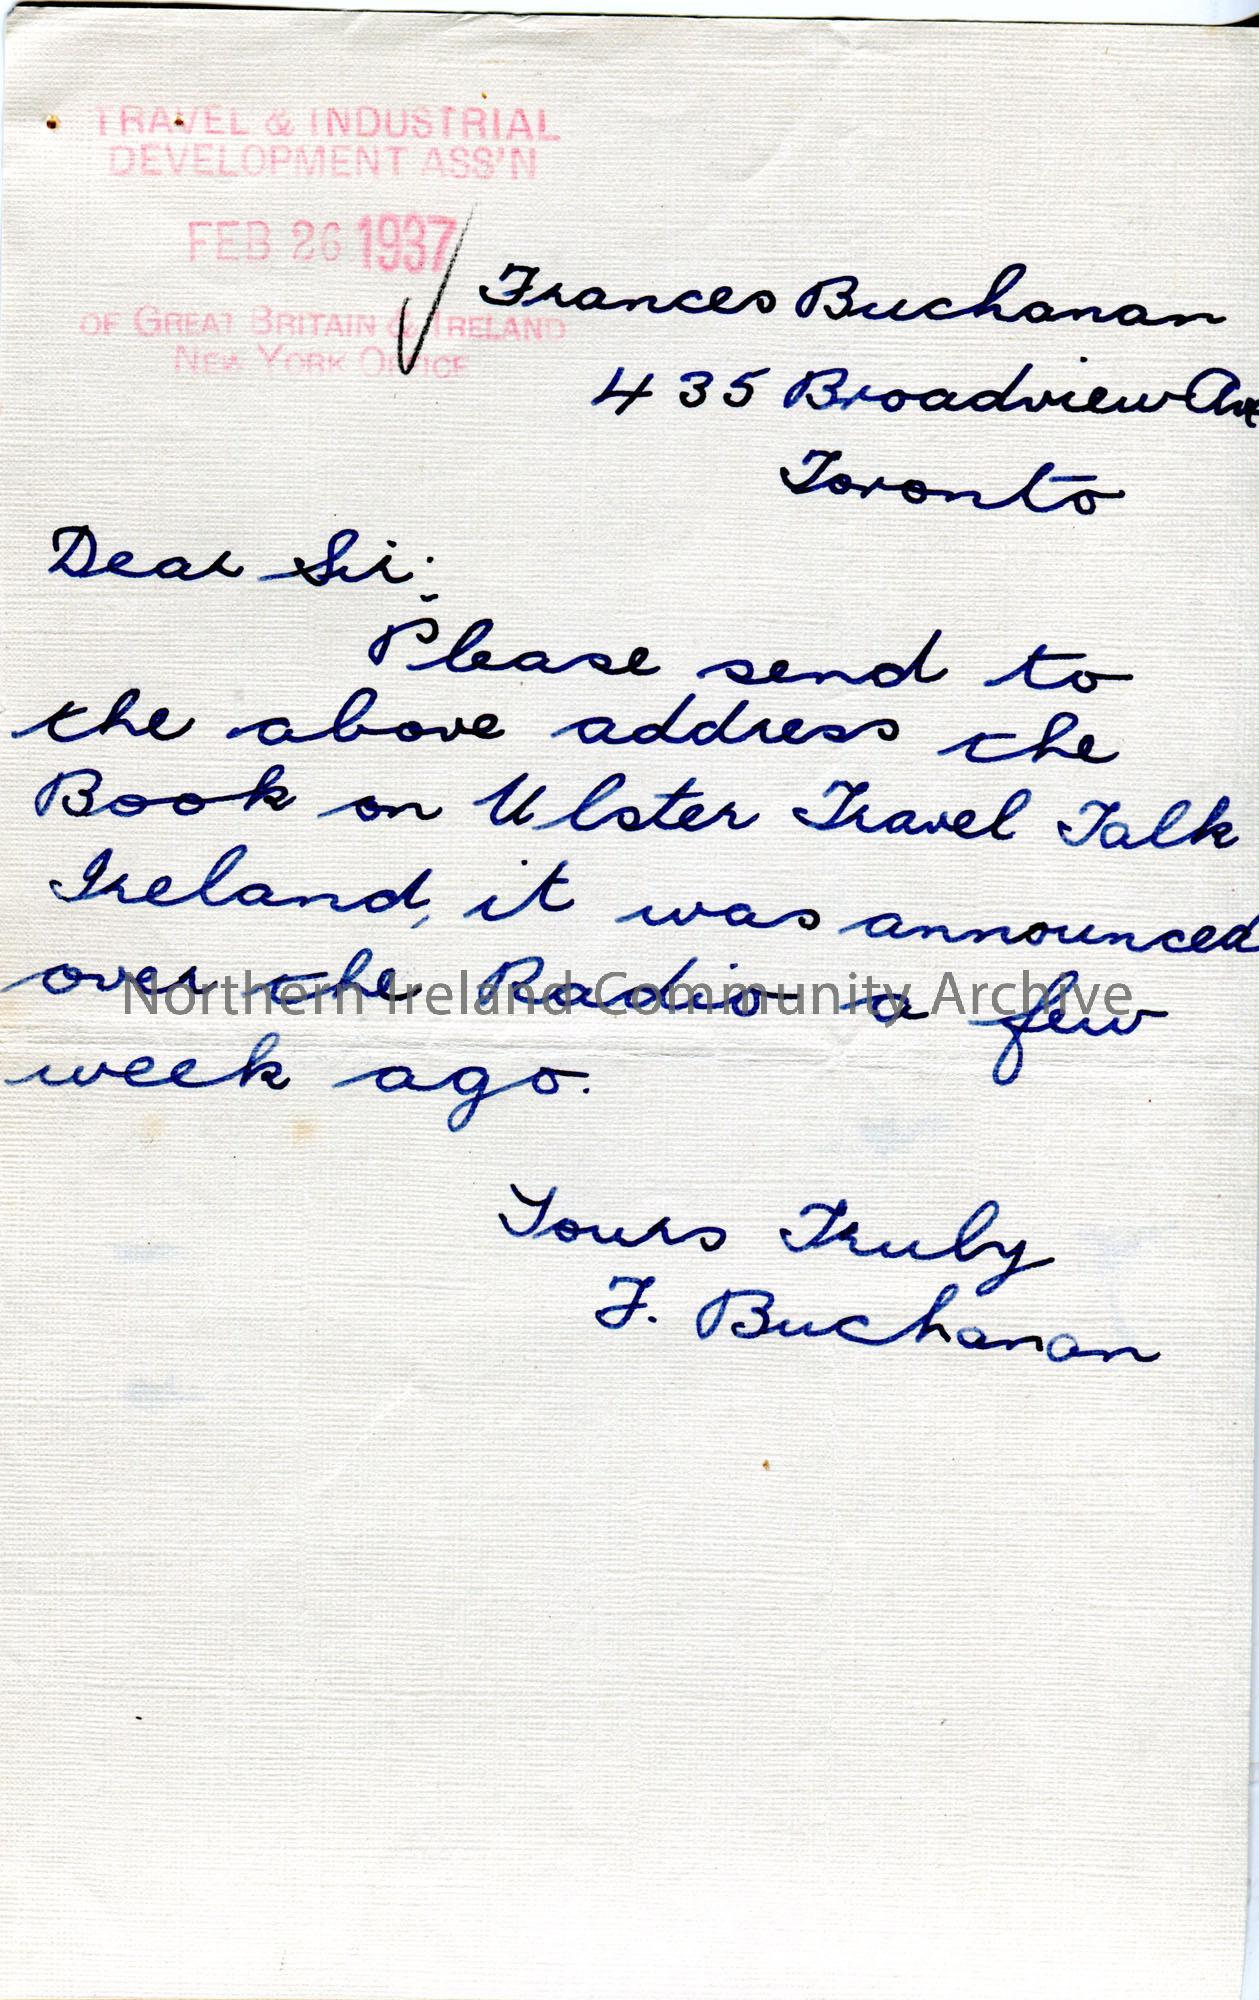 TRAVEL & INDUSTRIAL
DEVELOPMENT ASS'N
FEB 26 1937
OF GREAT BRITAIN & IRELAND
NEW YORK OFFICE
Frances Buchanan
435 Broadview Ave
Toronto
Dear Sir:
Please send to
the above address the
Book on Ulster Travel Talk
Ireland, it was announced
over the Radio a few
week ago.
Yours Truly
F. Buchanan
Northern Ireland Community Archive